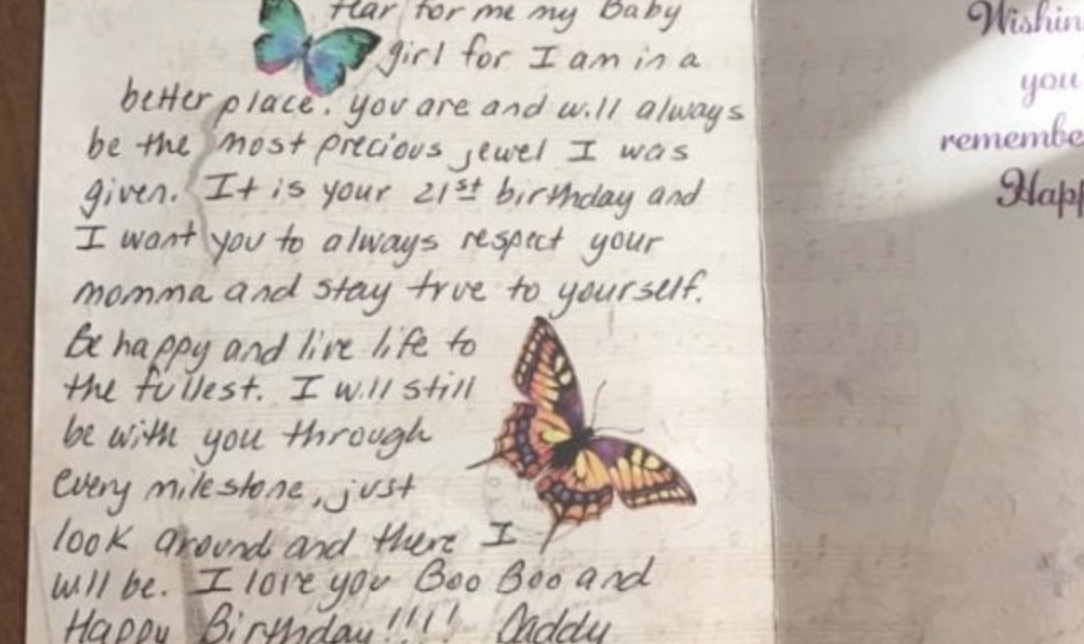 tear for me my Baby
girl for I am in a
better place. you are and will always
be the most precious jewel I was
given. It is your 21st birthday and
I want you to always respect your
momma and stay true to yourself.
Be happy and live life to
the fullest. I will still
be with you through
every milestone, just
look around and there I
will be. I love you Boo Boo and
Happy Birthday!!!! Daddy
Wishin
you
remembe
Happ